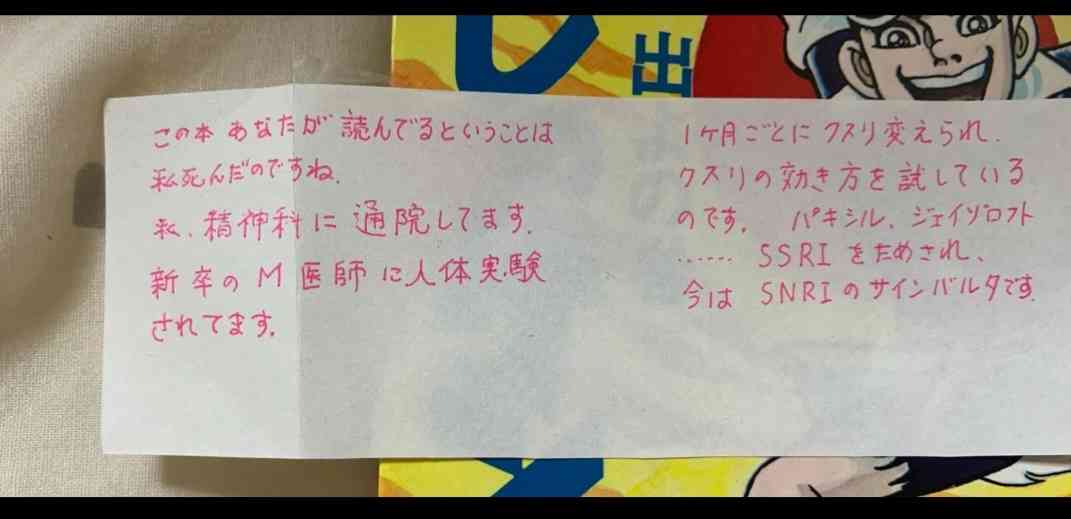 この本あなたが読んでるということは
私死んだのですね.
私、精神科に通院してます.
新卒のM医師に人体実験
されてます.
1ケ月ごとにクスリ変えられ.
クスリの効き方を試している
のです。 パキシル、ジェイゾロフト
…… SSRIをためされ、
今は SNRIのサインバルタです.